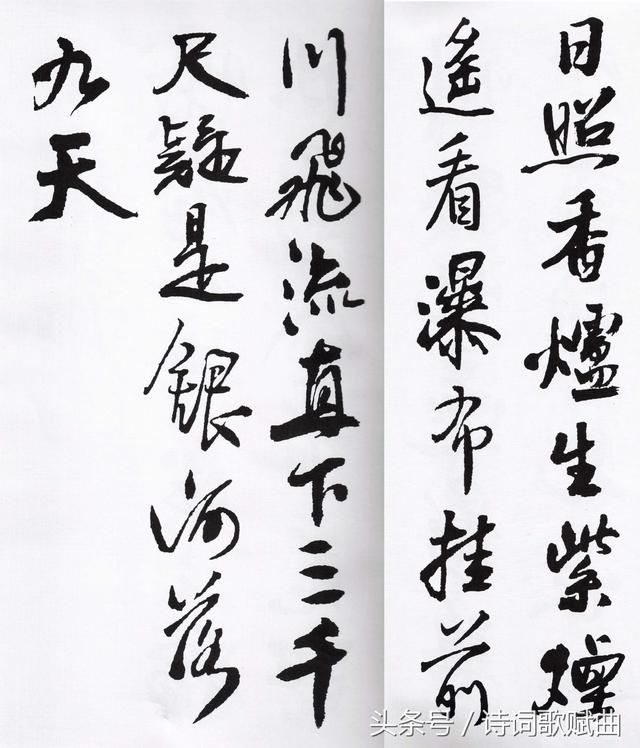 日照香爐生紫煙
遙看瀑布挂前
川飛流直下三千
尺疑是銀河落
九天
头条号／诗词歌赋曲